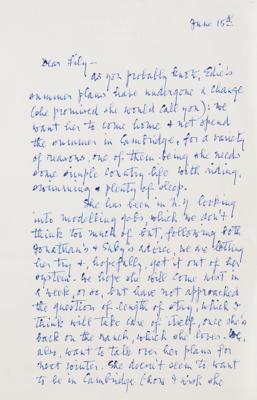 June 15th
Dear Lily —
as you probably know, Edie's
summer plans have undergone a change
(she promised she would call you): we
want her to come home & not spend
the summer in Cambridge, for a variety
of reasons, one of them being she needs
some simple country life with riding,
swimming & plenty of sleep.
She has been in N.Y. looking
into modelling jobs which we don't
think too much of but, following both
Jonathan's & Suky's advice, we are letting
her try &, hopefully, get it out of her
system. We hope she will come west in
a week, or so, but have not approached
the question of length of stay, which I
think will take care of itself, once she's
back on the ranch, which she loves. We,
also, want to talk over her plans for
next winter. She doesn't seem to want
to be in Cambridge (how I wish she